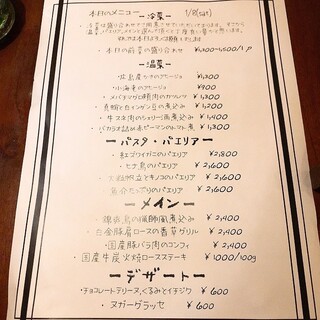 本日のメニュー 1/8(sat)
ー冷菜ー
・本日の前菜の盛り合わせ ¥1,200~1,500/1P
ー温菜ー
・広島産かきのアヒージョ ¥1,300
・小海老のアヒージョ ¥900
¥1,300
・真鯛と白インゲン豆の煮込み ¥1,200
・牛スネ肉のシェリー風煮込み ¥1,400
・バカラオ詰め赤ピーマンのトマト煮 ¥1,300
ーパスタ・パエリアー
・紅ズワイガニのパエリア ¥2,800
・ヒナ鳥のパエリア ¥2,600
・大粒帆立とキノコのパエリア ¥2,600
・魚介たっぷりのパエリア ¥2,600
ーメインー
・錦爽鳥の猟師風煮込み ¥2,400
・白金豚肩ロースの香草グリル ¥2,400
・国産豚バラ肉のコンフィ ¥2,400
・国産牛炭火焼ロースステーキ ¥1000/100g
ーデザートー
・チョコレートテリーヌ、くるみとイチジク ¥600
・ヌガーグラッセ ¥600